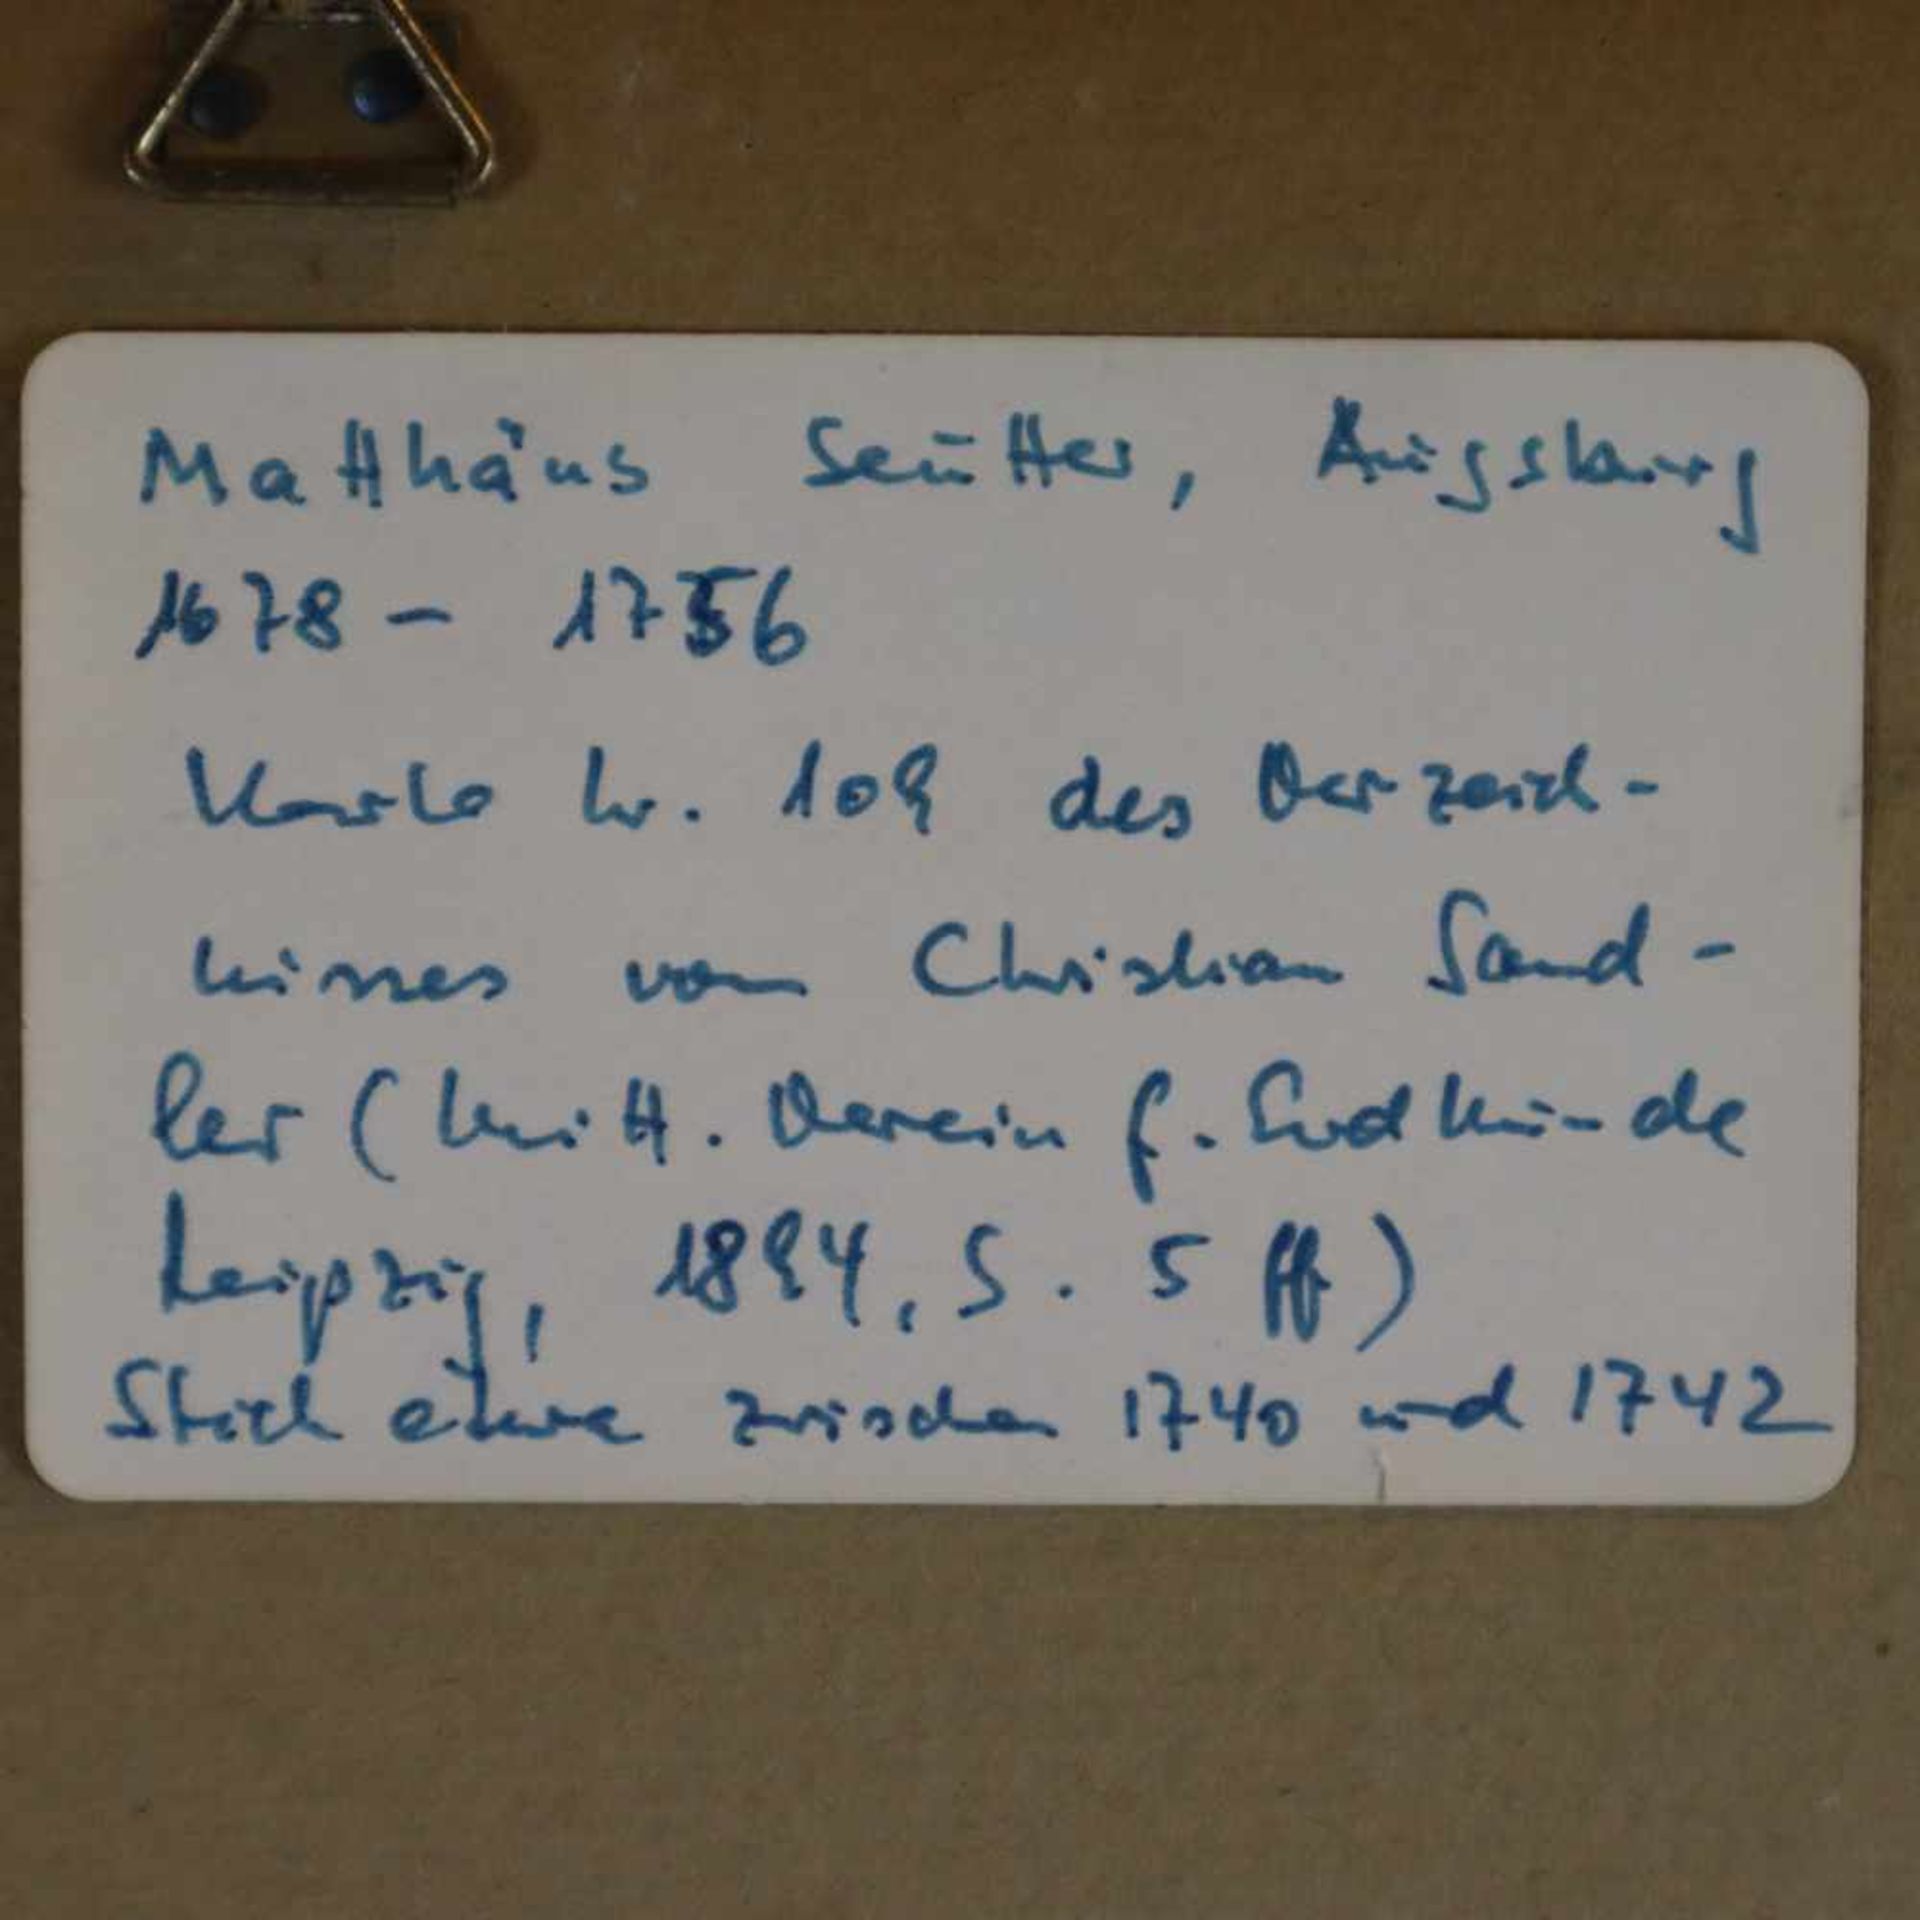 Matthäus Seutter, Augsburg
1678 - 1756
Karte Nr. 109 des Verzeich-
nisses von Christian Sand-
ler (Mitt. Verein f. Erdkunde
Leipzig, 1894, S. 5 ff)
Stich etwa zwischen 1740 und 1742